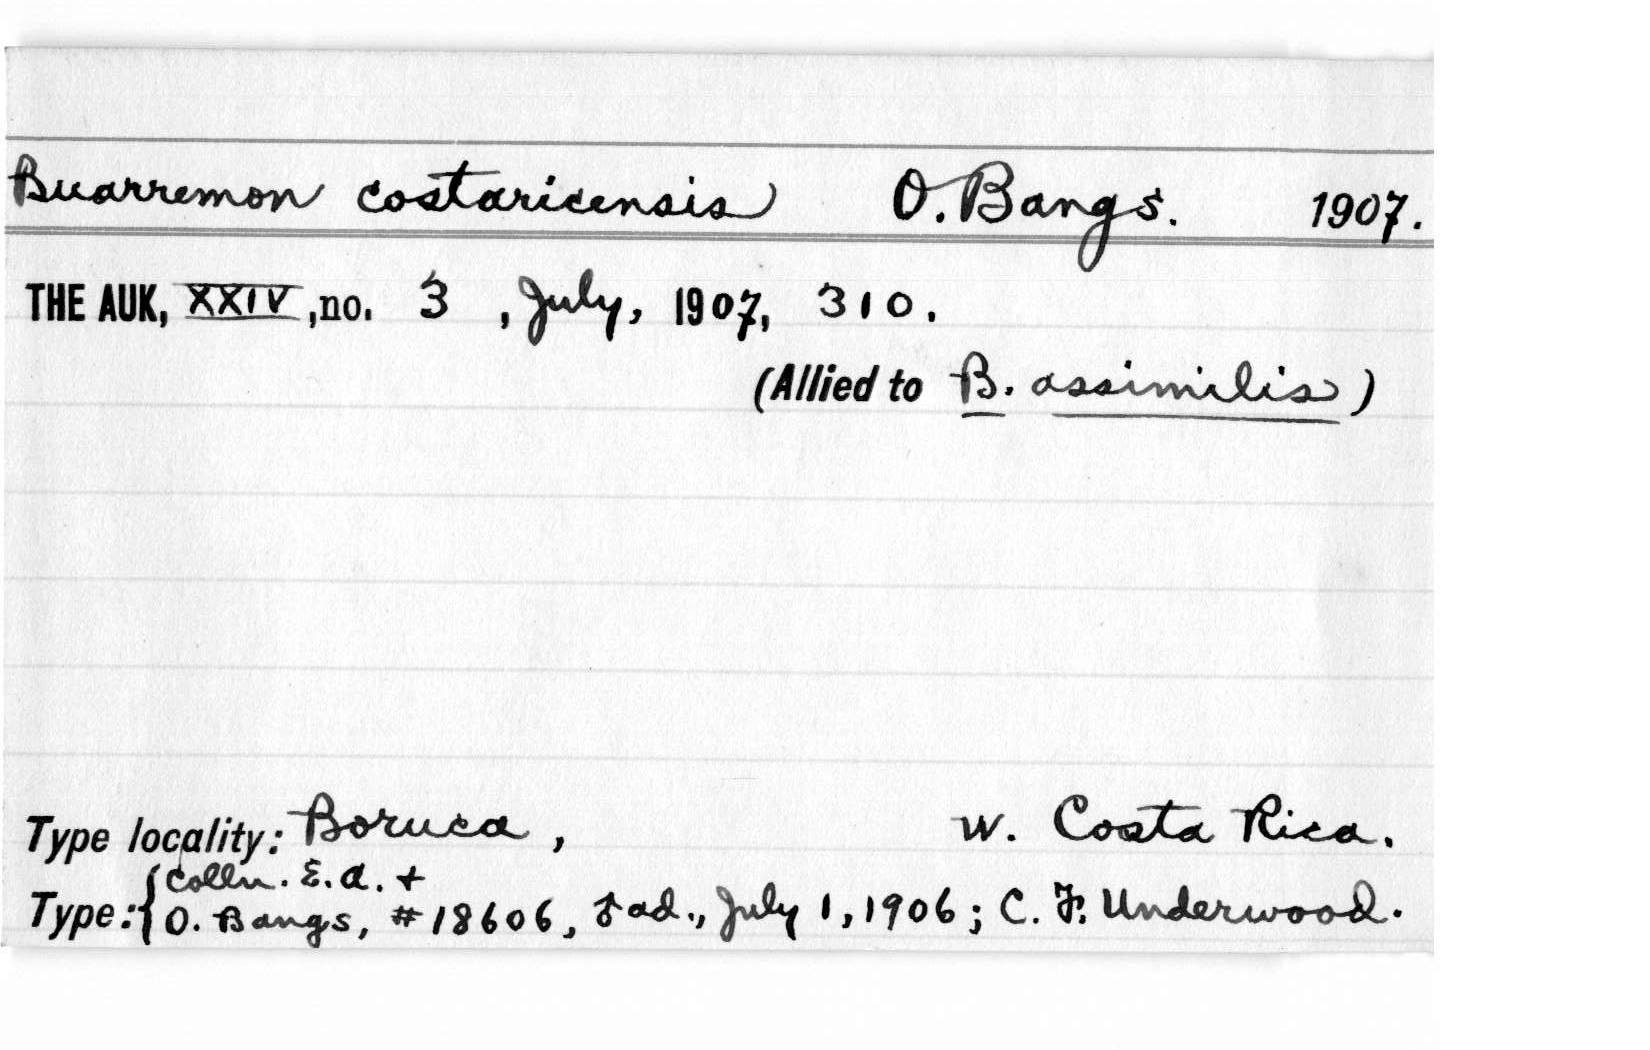 Buarremon costaricensis O. Bangs. 1907.
THE AUK, XXIV, no. 3, July, 1907, 310.
(Allied to B. assimilis)
Type locality: Boruca, W. Costa Rica.
Type: { Colln. E.A. +
O. Bangs, #18606, ♂ ad., July 1, 1906; C. F. Underwood.